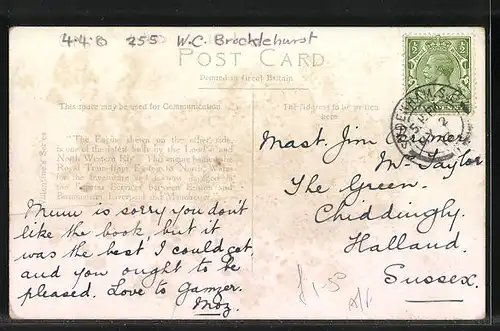 4·4·0 255 W.C. Brocklehurst
POST CARD
Printed in Great Britain
This space may be used for Communication
The Address to be written here
"The Engine shown on the other side
is one of the latest built by the London and
North Western Rly. This engine hauled the
Royal Train from to North Wales
for the
the Cross between Euston and
Birmingham, Liverpool and Manchester."
Valentine's Series
Mum is sorry you don't
like the book but it
was the best I could get
and you ought to be
pleased. Love to Gamzer.
Moz.
Mast. Jim
Mr Taylor
The Green.
Chiddingly.
Halland.
Sussex.
£1-50